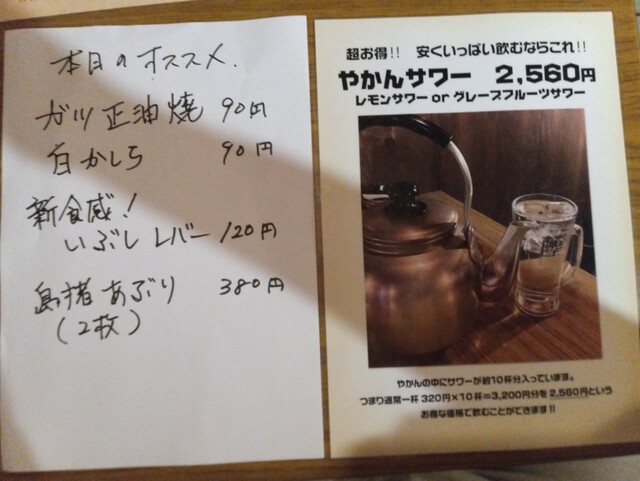 本日のオススメ.
ガツ正油焼 90円
白かしら 90円
新食感!
いぶしレバー 120円
あぶり 380円
(2枚)
超お得!! 安くいっぱい飲むならこれ!!
やかんサワー 2,560円
レモンサワー or グレープフルーツサワー
やかんの中にサワーが約10杯分入っています。
つまり通常一杯 320円×10杯=3,200円分を 2,560円という
お得な価格で飲むことができます!!